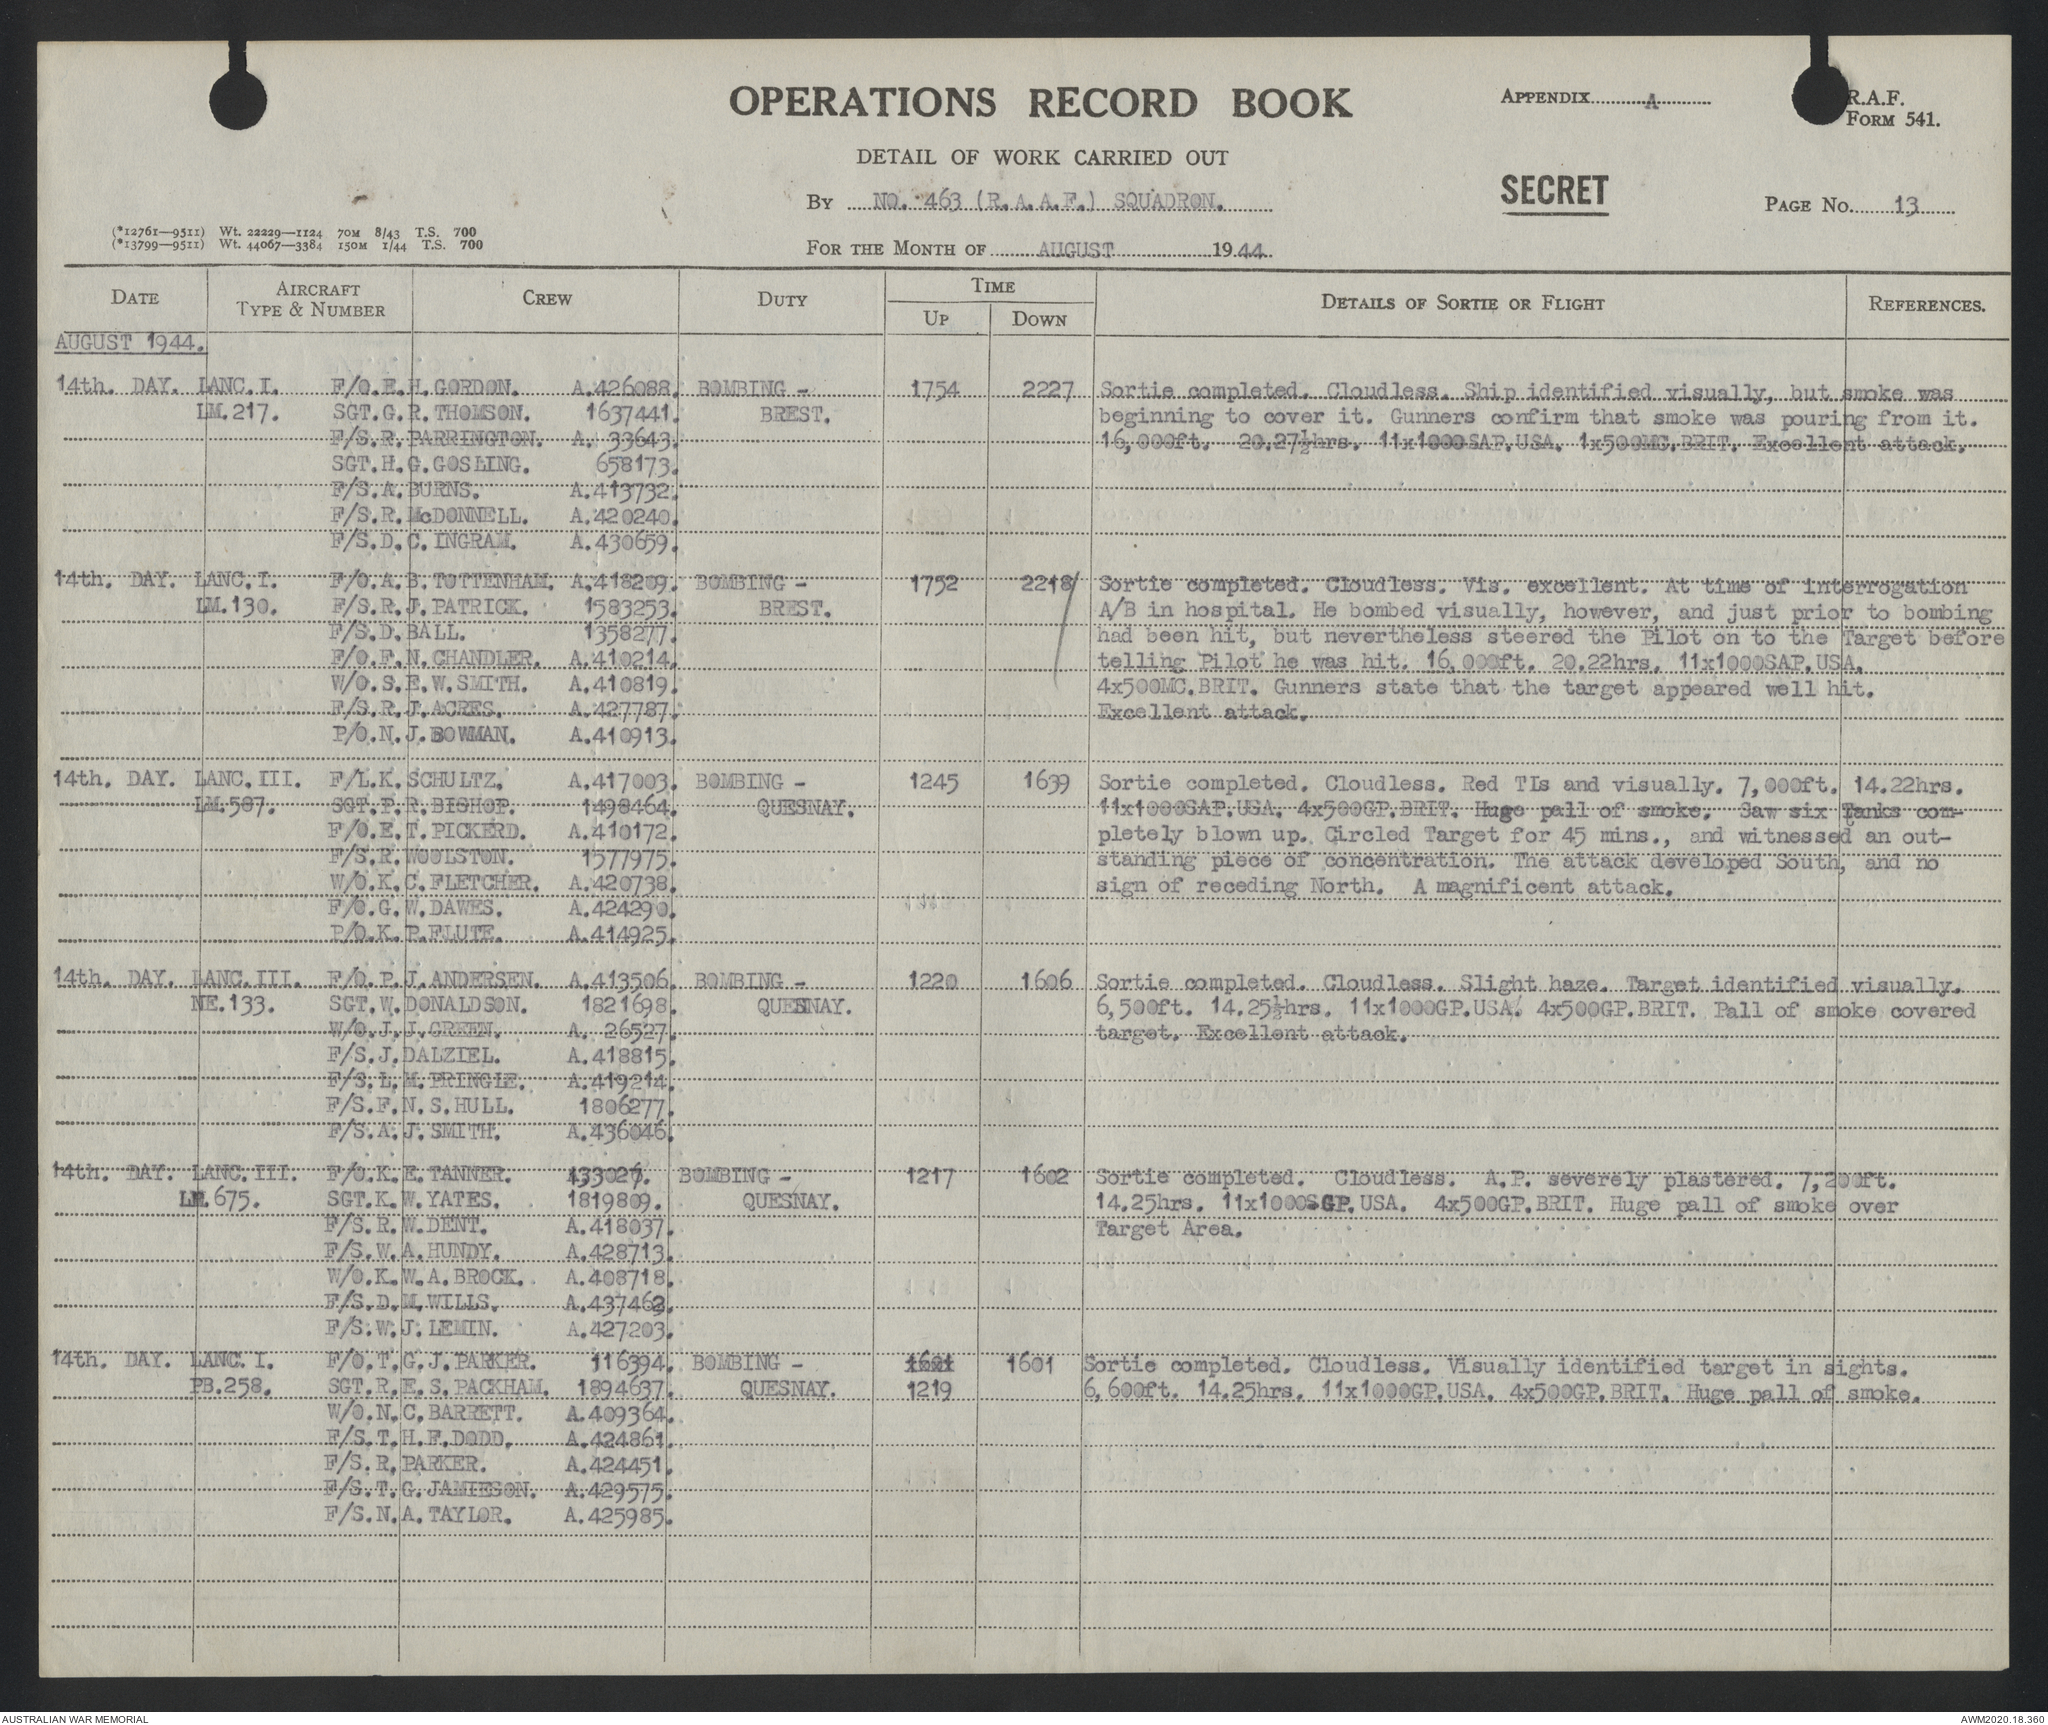 OPERATIONS RECORD BOOK
APPENDIX A
R.A.F.
FORM 541.
DETAIL OF WORK CARRIED OUT
SECRET
By NO. 463 (R.A.A.F.) SQUADRON.
PAGE No. 13
(*12761—9511) Wt. 22229—1124 70M 8/43 T.S. 700
(*13799—9511) Wt. 44067—3384 150M 1/44 T.S. 700
FOR THE MONTH OF AUGUST 1944
DATE AIRCRAFT TYPE & NUMBER CREW DUTY TIME UP DOWN DETAILS OF SORTIE OR FLIGHT REFERENCES.
AUGUST 1944.
14th. DAY. LANC.I. F/O.E.H.GORDON. A.426088. BOMBING - 1754 2227 Sortie completed. Cloudless. Ship identified visually, but smoke was
LM.217. SGT.G.R.THOMSON. 1637441. BREST. beginning to cover it. Gunners confirm that smoke was pouring from it.
F/S.R.PARRINGTON. A. 33643. 16,000ft. 20.27½hrs. 11x1000SAP.USA. 1x500MC.BRIT. Excellent attack.
SGT.H.G.GOSLING. 658173.
F/S.A.BURNS. A.413732.
F/S.R.McDONNELL. A.420240.
F/S.D.C.INGRAM. A.430659.
14th. DAY. LANC.I. F/O.A.B.TOTTENHAM. A.418209. BOMBING - 1752 2218/ Sortie completed. Cloudless. Vis. excellent. At time of interrogation
LM.130. F/S.R.J.PATRICK. 1583253. BREST. A/B in hospital. He bombed visually, however, and just prior to bombing
F/S.D.BALL. 1358277. had been hit, but nevertheless steered the Pilot on to the Target before
F/O.F.N.CHANDLER. A.410214. telling Pilot he was hit. 16,000ft. 20.22hrs. 11x1000SAP.USA.
W/O.S.E.W.SMITH. A.410819. 4x500MC.BRIT. Gunners state that the target appeared well hit.
F/S.R.J.ACRES. A.427787. Excellent attack.
P/O.N.J.BOWMAN. A.410913.
14th. DAY. LANC.III. F/L.K.SCHULTZ. A.417003. BOMBING - 1245 1639 Sortie completed. Cloudless. Red TIs and visually. 7,000ft. 14.22hrs.
LM.587. SGT.P.R.BISHOP. 1498464. QUESNAY. 11x1000SAP.USA. 4x500GP.BRIT. Huge pall of smoke. Saw six Tanks com-
F/O.E.T.PICKERD. A.410172. pletely blown up. Circled Target for 45 mins., and witnessed an out-
F/S.R.WOOLSTON. 1577975. standing piece of concentration. The attack developed South, and no
W/O.K.C.FLETCHER. A.420738. sign of receding North. A magnificent attack.
F/O.G.W.DAWES. A.424290.
P/O.K.P.FLUTE. A.414925.
14th. DAY. LANC.III. F/O.P.J.ANDERSEN. A.413506. BOMBING - 1220 1606 Sortie completed. Cloudless. Slight haze. Target identified visually.
NE.133. SGT.W.DONALDSON. 1821698. QUESNAY. 6,500ft. 14.25½hrs. 11x1000GP.USA. 4x500GP.BRIT. Pall of smoke covered
W/O.J.J.GREEN. A. 26527. target. Excellent attack.
F/S.J.DALZIEL. A.418815.
F/S.L.M.PRINGLE. A.419214.
F/S.F.N.S.HULL. 1806277.
F/S.A.J.SMITH. A.436046.
14th. DAY. LANC.III. F/O.K.E.TANNER. 133027. BOMBING - 1217 1602 Sortie completed. Cloudless. A.P. severely plastered. 7,200ft.
LM.675. SGT.K.W.YATES. 1819809. QUESNAY. 14.25hrs. 11x1000GP.USA. 4x500GP.BRIT. Huge pall of smoke over
F/S.R.W.DENT. A.418037. Target Area.
F/S.W.A.HUNDY. A.428713.
W/O.K.W.A.BROCK. A.408718.
F/S.D.M.WILLS. A.437462.
F/S.W.J.LEMIN. A.427203.
14th. DAY. LANC.I. F/O.T.G.J.PARKER. 116394. BOMBING - 1601 Sortie completed. Cloudless. Visually identified target in sights.
PB.258. SGT.R.E.S.PACKHAM. 1894637. QUESNAY. 1219 6,600ft. 14.25hrs. 11x1000GP.USA. 4x500GP.BRIT. Huge pall of smoke.
W/O.N.C.BARRETT. A.409364.
F/S.T.H.F.DODD. A.424861.
F/S.R.PARKER. A.424451.
F/S.T.G.JAMIESON. A.429575.
F/S.N.A.TAYLOR. A.425985.
AUSTRALIAN WAR MEMORIAL
AWM2020.18.360